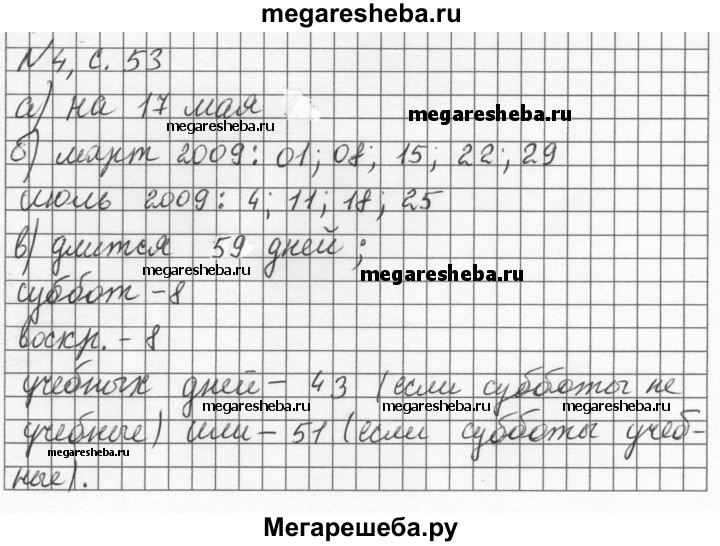 megaresheba.ru
N4, с. 53
а) на 17 мая
megaresheba.ru
megaresheba.ru
б) март 2009: 01; 08; 15; 22; 29
июль 2009: 4; 11; 18; 25
в) длится 59 дней;
megaresheba.ru
megaresheba.ru
суббот - 8
воскр. - 8
учебных дней - 43 (если субботы не
megaresheba.ru megaresheba.ru megaresheba.ru
учебные) или - 51 (если субботы учеб-
megaresheba.ru
ные).
Мегарешеба.ру